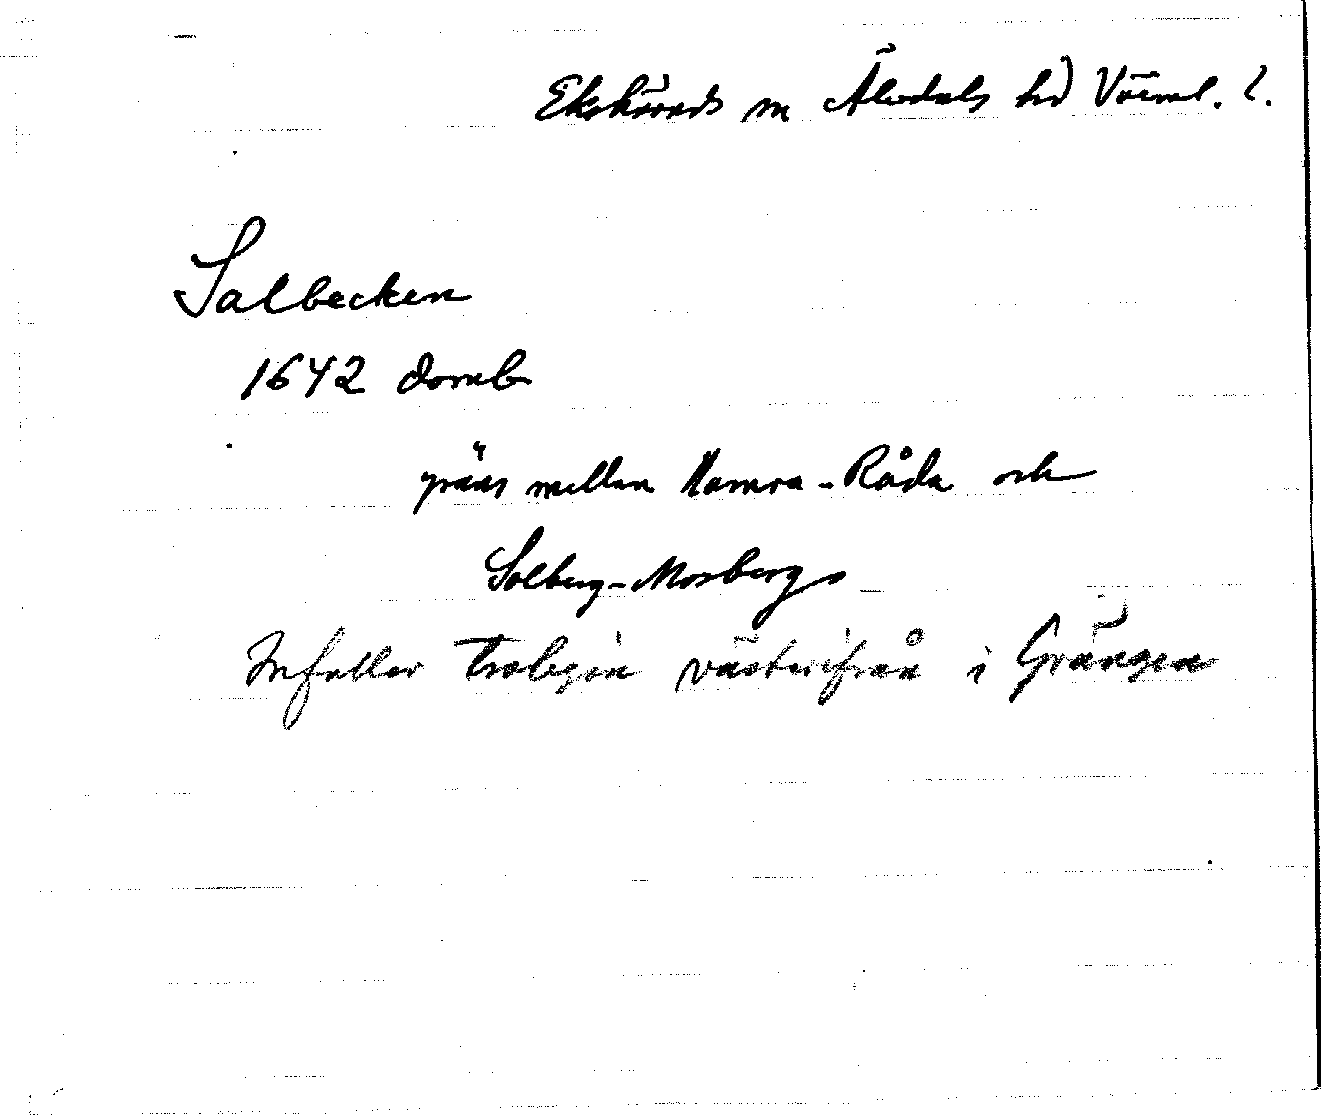 Ekshärads sn Älvdals hd Värml. l.
Salbecken
1642 domb
gräns mellan Hamra-Råda och
Solberg-Mosberg
Infaller troligen västerifrån i Grängen